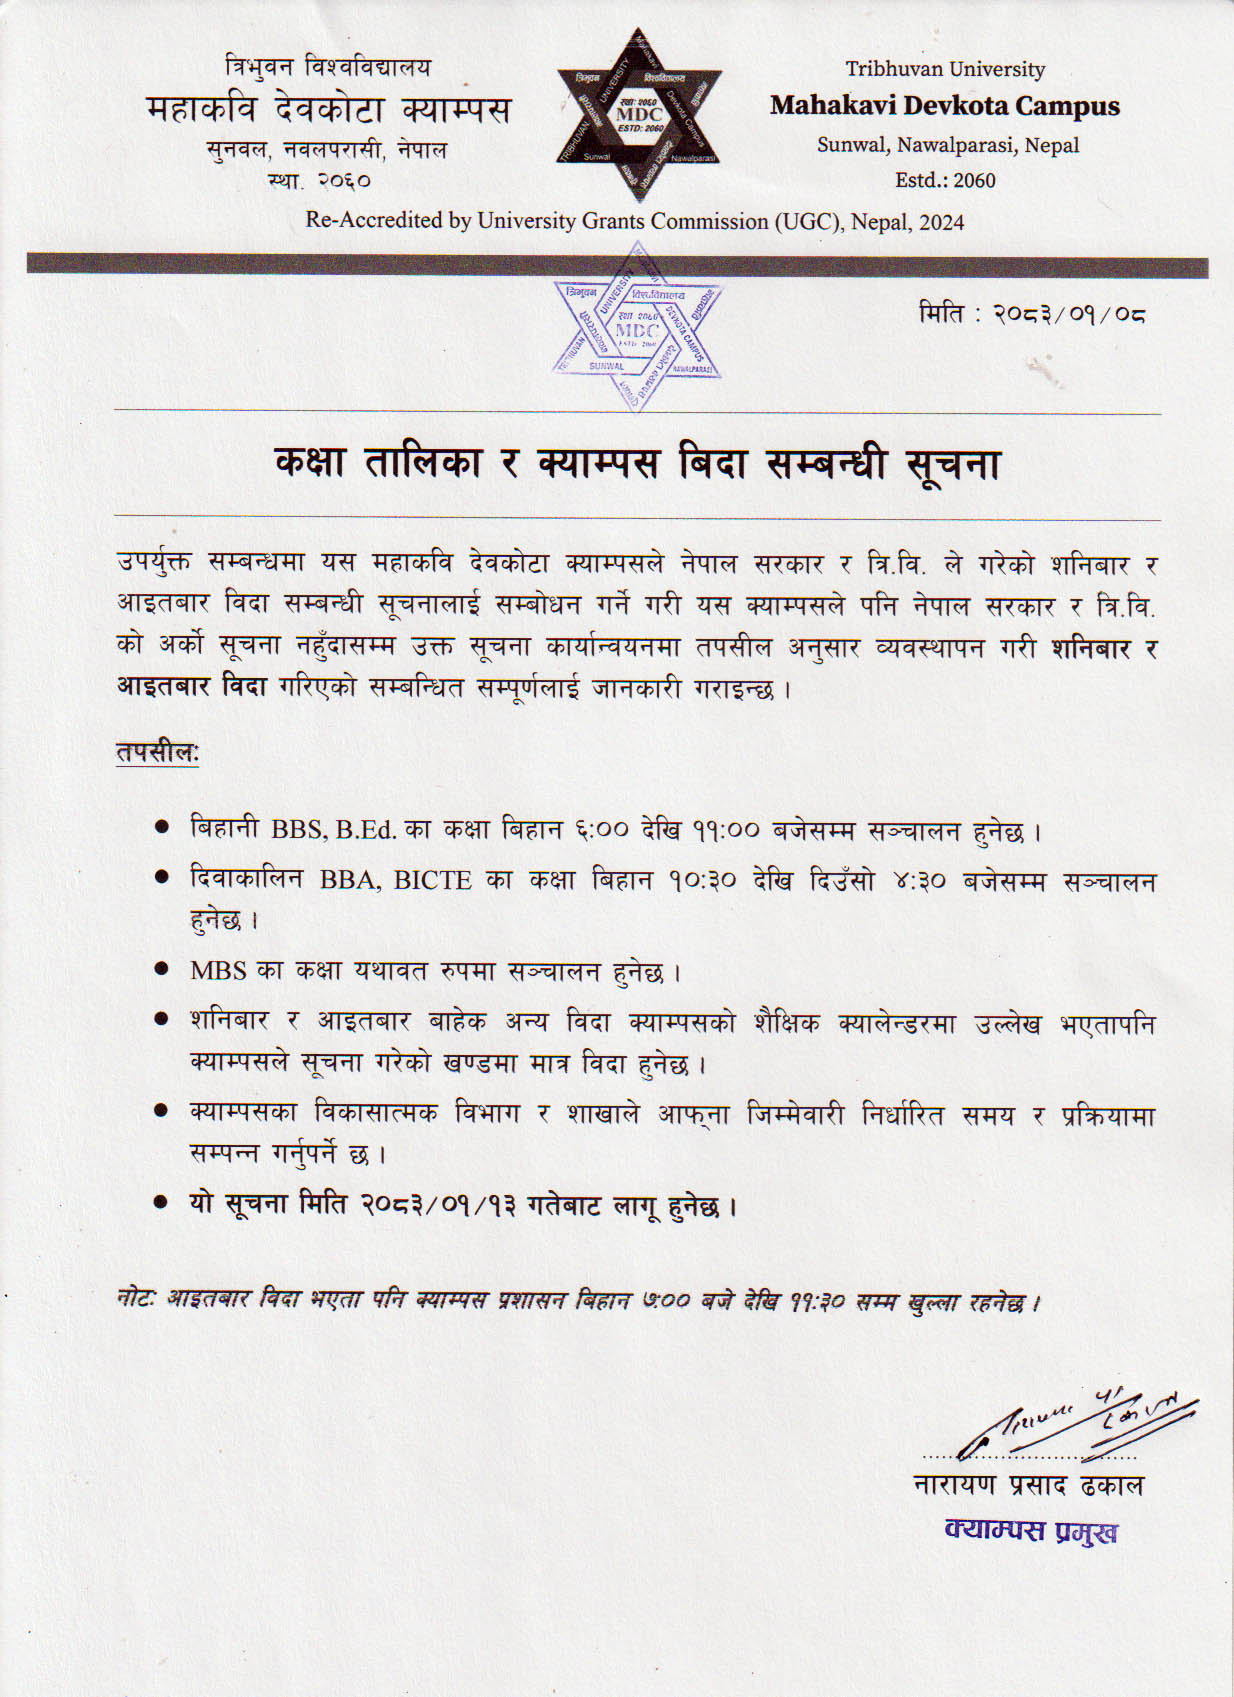 त्रिभुवन विश्वविद्यालय
महाकवि देवकोटा क्याम्पस
सुनवल, नवलपरासी, नेपाल
स्था. २०६०
त्रिभुवन
विश्वविद्यालय
UNIVERSITY
Mahakavi
Devkota Campus
स्था: २०६०
MDC
ESTD: 2060
TRIBHUVAN
Sunwal
Nawalparasi
Tribhuvan University
Mahakavi Devkota Campus
Sunwal, Nawalparasi, Nepal
Estd.: 2060
Re-Accredited by University Grants Commission (UGC), Nepal, 2024
त्रिभुवन
विश्वविद्यालय
UNIVERSITY
स्था २०६०
MDC
ESTD 2060
DEVKOTA CAMPUS
TRIBHUVAN
SUNWAL
NAWALPARASI
मिति : २०८३/०१/०८
कक्षा तालिका र क्याम्पस बिदा सम्बन्धी सूचना
उपर्युक्त सम्बन्धमा यस महाकवि देवकोटा क्याम्पसले नेपाल सरकार र त्रि.वि. ले गरेको शनिबार र
आइतबार विदा सम्बन्धी सूचनालाई सम्बोधन गर्ने गरी यस क्याम्पसले पनि नेपाल सरकार र त्रि.वि.
को अर्को सूचना नहुँदासम्म उक्त सूचना कार्यान्वयनमा तपसील अनुसार व्यवस्थापन गरी शनिबार र
आइतबार विदा गरिएको सम्बन्धित सम्पूर्णलाई जानकारी गराइन्छ ।
तपसीलः
● बिहानी BBS, B.Ed. का कक्षा बिहान ६:०० देखि ११:०० बजेसम्म सञ्चालन हुनेछ ।
● दिवाकालिन BBA, BICTE का कक्षा बिहान १०:३० देखि दिउँसो ४:३० बजेसम्म सञ्चालन
हुनेछ ।
● MBS का कक्षा यथावत रुपमा सञ्चालन हुनेछ ।
● शनिबार र आइतबार बाहेक अन्य विदा क्याम्पसको शैक्षिक क्यालेन्डरमा उल्लेख भएतापनि
क्याम्पसले सूचना गरेको खण्डमा मात्र विदा हुनेछ ।
● क्याम्पसका विकासात्मक विभाग र शाखाले आफ्‌ना जिम्मेवारी निर्धारित समय र प्रक्रियामा
सम्पन्न गर्नुपर्ने छ ।
● यो सूचना मिति २०८३/०१/१३ गतेबाट लागू हुनेछ ।
नोटः आइतबार विदा भएता पनि क्याम्पस प्रशासन बिहान ७:०० बजे देखि ११:३० सम्म खुल्ला रहनेछ ।
नारायण प्रसाद ढकाल
क्याम्पस प्रमुख